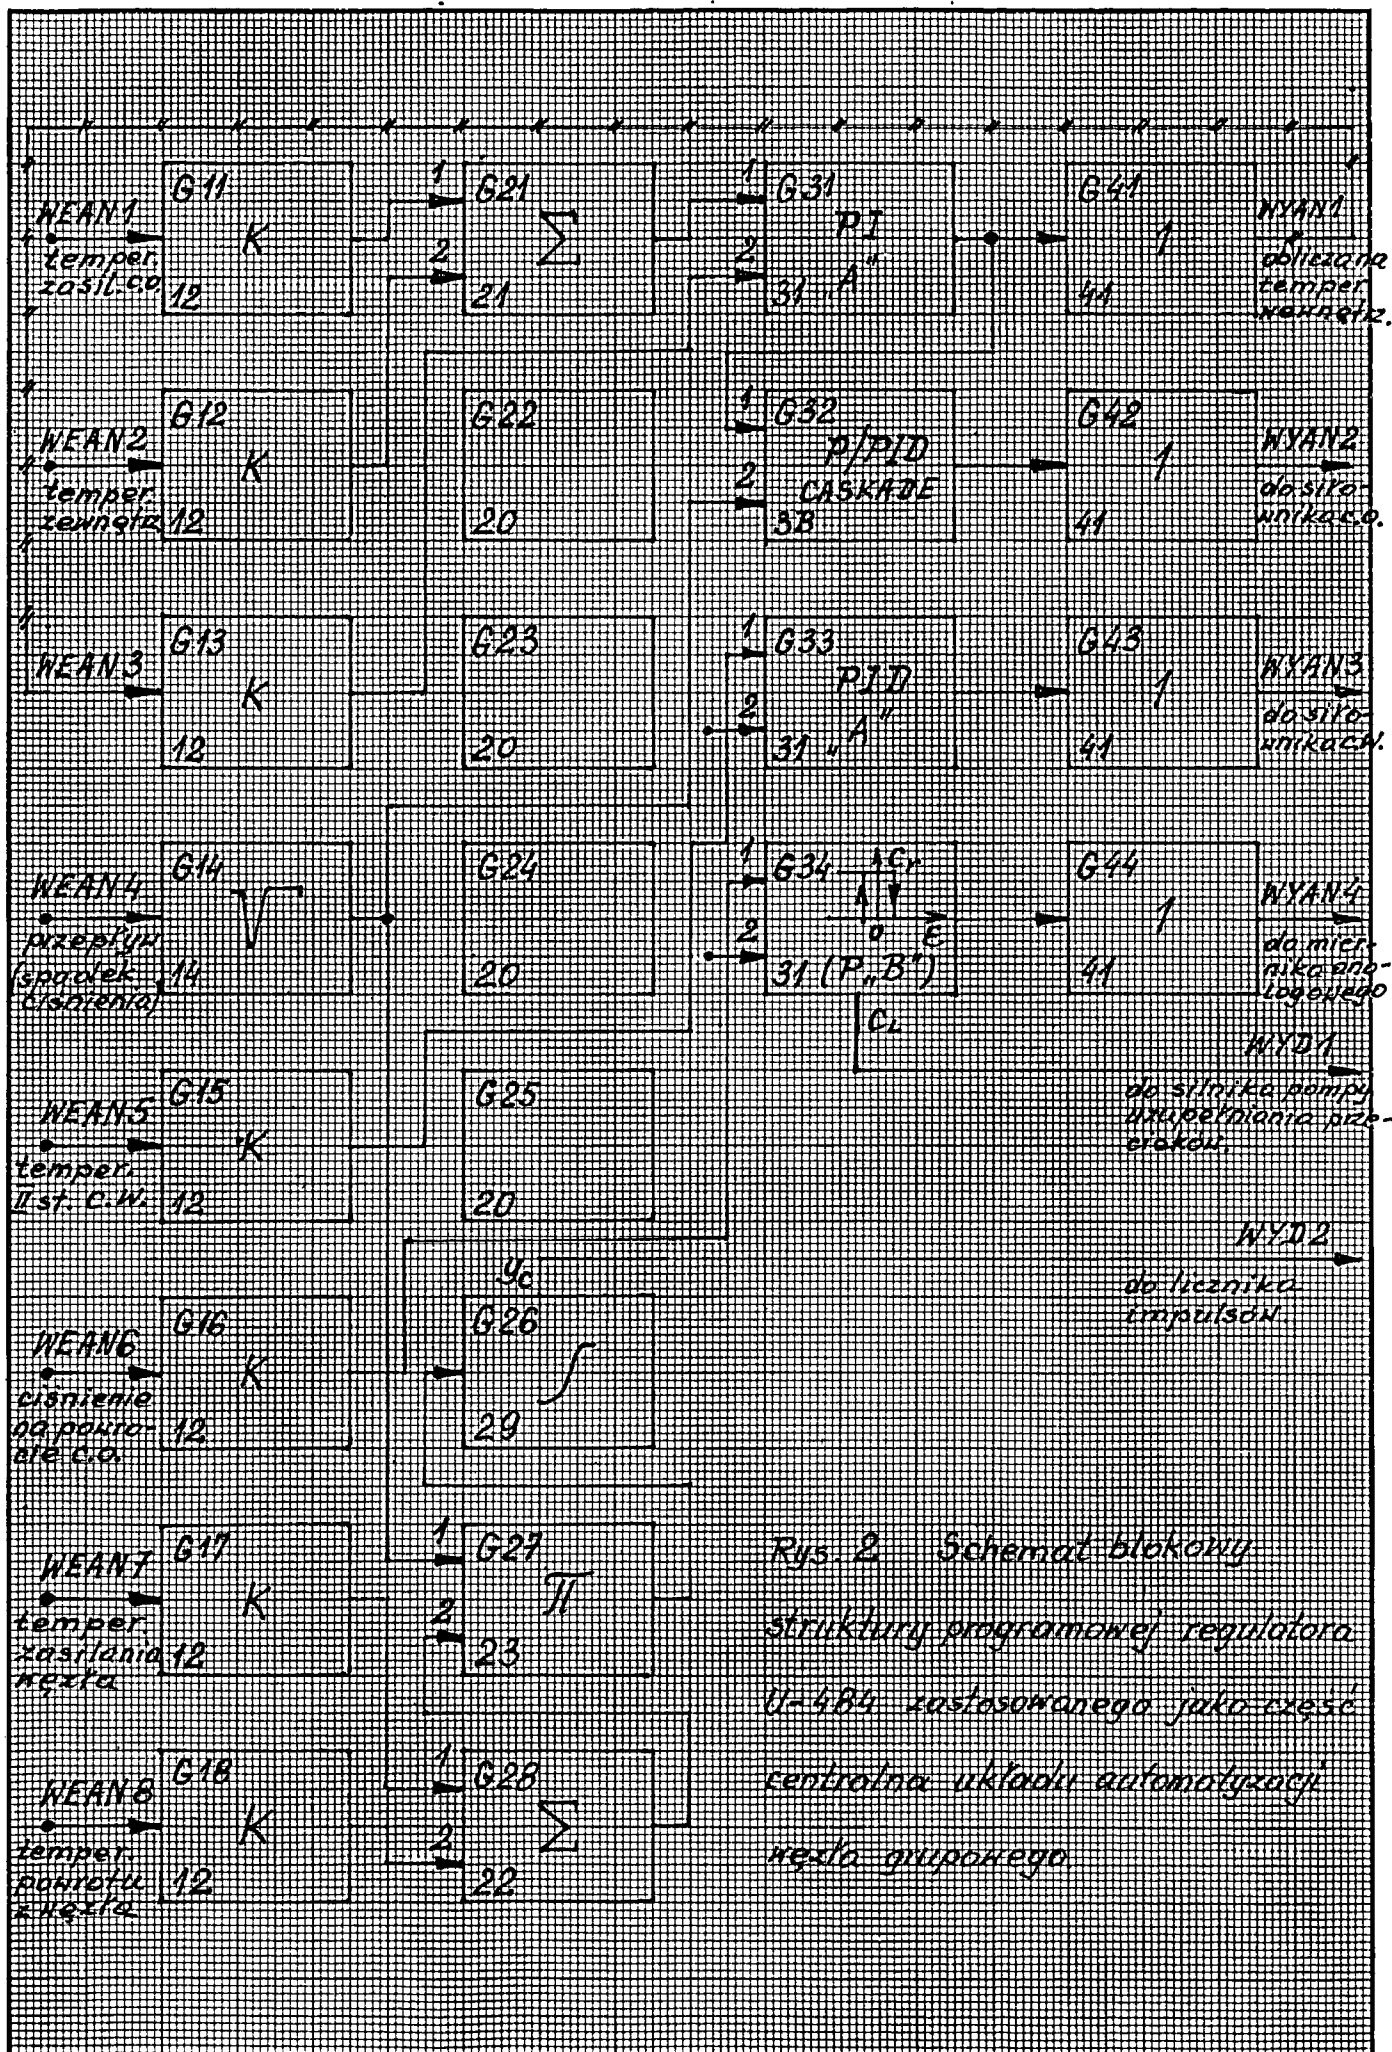 WEAN1
temper.
zasil. c.o.
G11
K
12
1
2
G21
Σ
21
1
2
G31
PI
31 „A"
G41
1
41
WYAN1
obliczana
temper.
wewnętrz.
WEAN2
temper.
zewnętrz.
G12
K
12
G22
20
1
2
G32
P/PID
CASKADE
3B
G42
1
41
WYAN2
do siło-
wnika c.o.
WEAN3
G13
K
12
G23
20
1
2
G33
PID
31 „A"
G43
1
41
WYAN3
do siło-
wnika c.w.
WEAN4
przepływ
(spadek
ciśnienia)
G14
√
14
G24
20
1
2
G34
Cr
0
ε
31 (P„B")
CL
G44
1
41
WYAN4
do mier-
nika ana-
logowego
WYD1
do silnika pompy
uzupełniania prze-
cieków.
WEAN5
temper.
II st. C.W.
G15
K
12
G25
20
WYD2
do licznika
impulsów.
WEAN6
ciśnienie
na powro-
cie c.o.
G16
K
12
Yc
G26
∫
29
WEAN7
temper.
zasilania
węzła
G17
K
12
1
2
G27
π
23
WEAN8
temper.
powrotu
z węzła
G18
K
12
1
2
G28
Σ
22
Rys. 2 Schemat blokowy
struktury programowej regulatora
U-4B4 zastosowanego jako część
centralna układu automatyzacji
węzła grupowego.